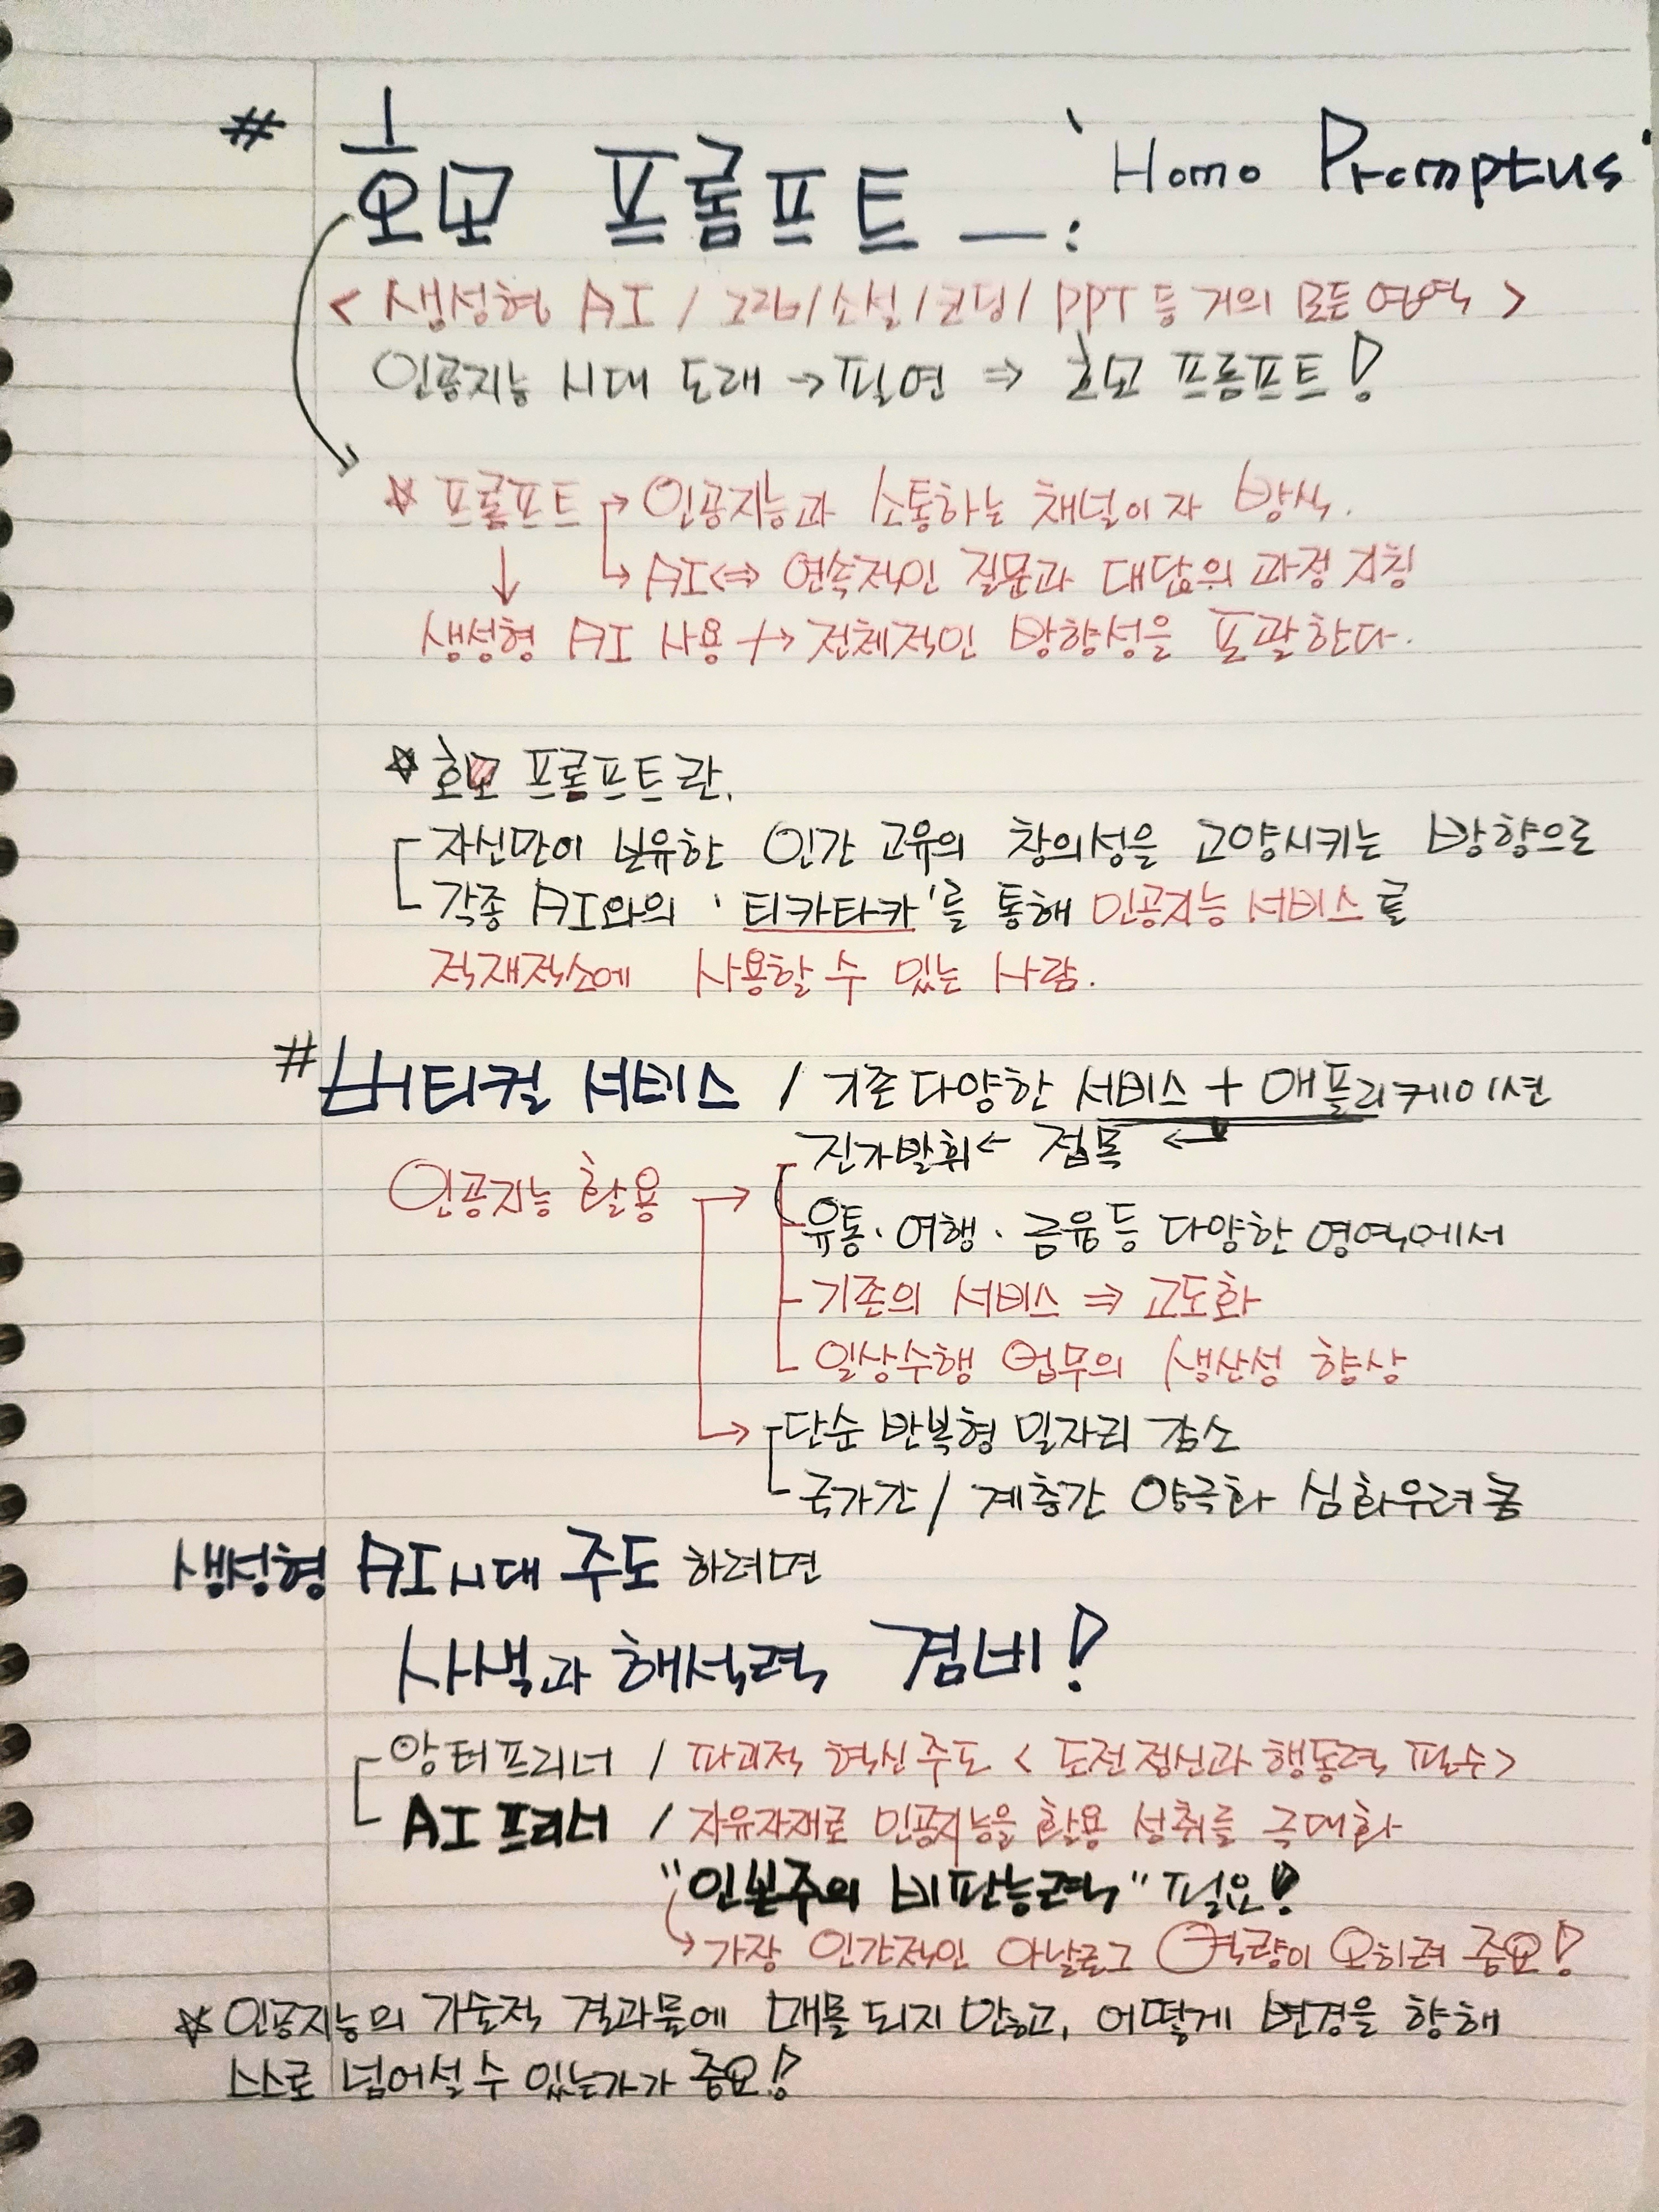 # 호모 프롬프트 — : 'Homo Promptus'
< 생성형 AI / 그림/소설/코딩/ PPT 등 거의 모든 영역 >
인공지능 시대 도래 → 필연 ⇒ 호모 프롬프트!
☆ 프롬프트 → 인공지능과 소통하는 채널이자 방식.
→ AI ⇔ 연속적인 질문과 대답의 과정 지칭
↓
생성형 AI 사용 → 전체적인 방향성을 포괄한다.
☆ 호모 프롬프트란,
자신만이 보유한 인간 고유의 창의성을 고양시키는 방향으로
각종 AI와의 '티카타카'를 통해 인공지능 서비스를
적재적소에 사용할 수 있는 사람.
# 버티컬 서비스 / 기존 다양한 서비스 + 애플리케이션
진가발휘 ← 접목 ←
인공지능 활용 →
유통 · 여행 · 금융 등 다양한 영역에서
기존의 서비스 ⇒ 고도화
일상수행 업무의 생산성 향상
→ 단순 반복형 일자리 감소
국가간 / 계층간 양극화 심화우려
생성형 AI시대 주도 하려면
사색과 해석력 겸비!
앙터프리너 / 파괴적 혁신주도 < 도전정신과 행동력 필수>
AI프리너 / 자유자재로 인공지능을 활용 성취를 극대화
"인본주의 비판능력" 필요!
→ 가장 인간적인 아날로그 역량이 오히려 중요!
☆ 인공지능의 기술적 결과물에 매몰되지 않고, 어떻게 변경을 향해
스스로 넘어설 수 있는가가 중요!